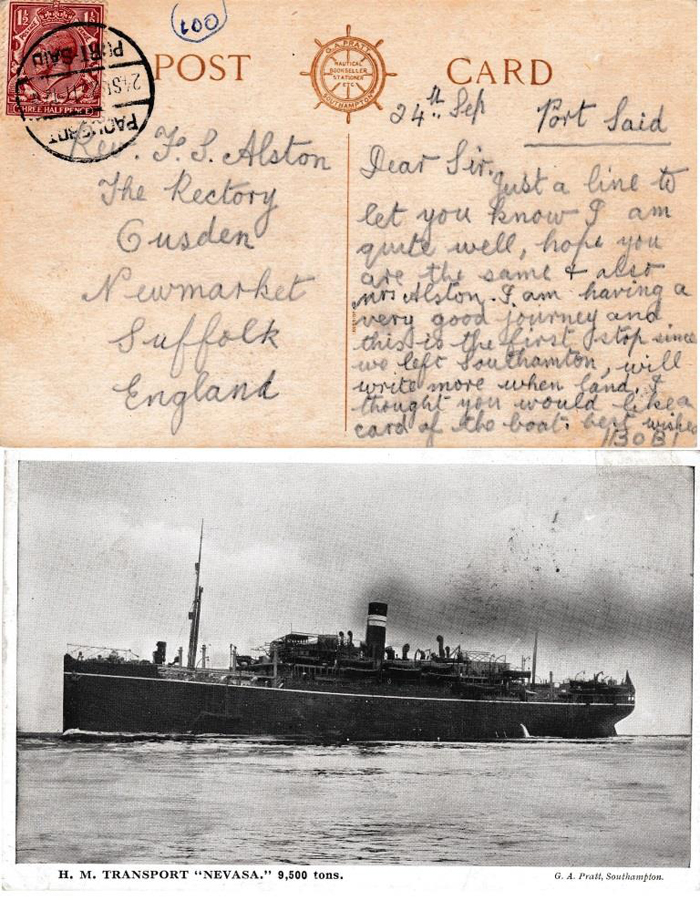 1½ 1½
THREE HALFPENCE
PORT SAID
24 S
PAQUEBOT
100
POST CARD
G. A. PRATT
NAUTICAL
BOOKSELLER
STATIONER
ETC
SOUTHAMPTON
Rev. F. S. Alston
The Rectory
Ousden
Newmarket
Suffolk
England
24th Sep
Port Said
Dear Sir,
Just a line to
let you know I am
quite well, hope you
are the same & also
Mrs Alston. I am having a
very good journey and
this is the first stop since
we left Southamton, will
write more when land. I
thought you would like a
card of the boat. best wishes
BOB
H. M. TRANSPORT "NEVASA." 9,500 tons.
G. A. Pratt, Southampton.